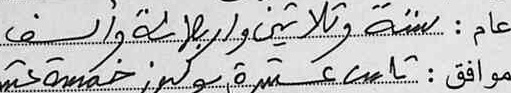 عام : ستة وثلاثين واربعمائة والف
موافق : عشرة خمسة عشر